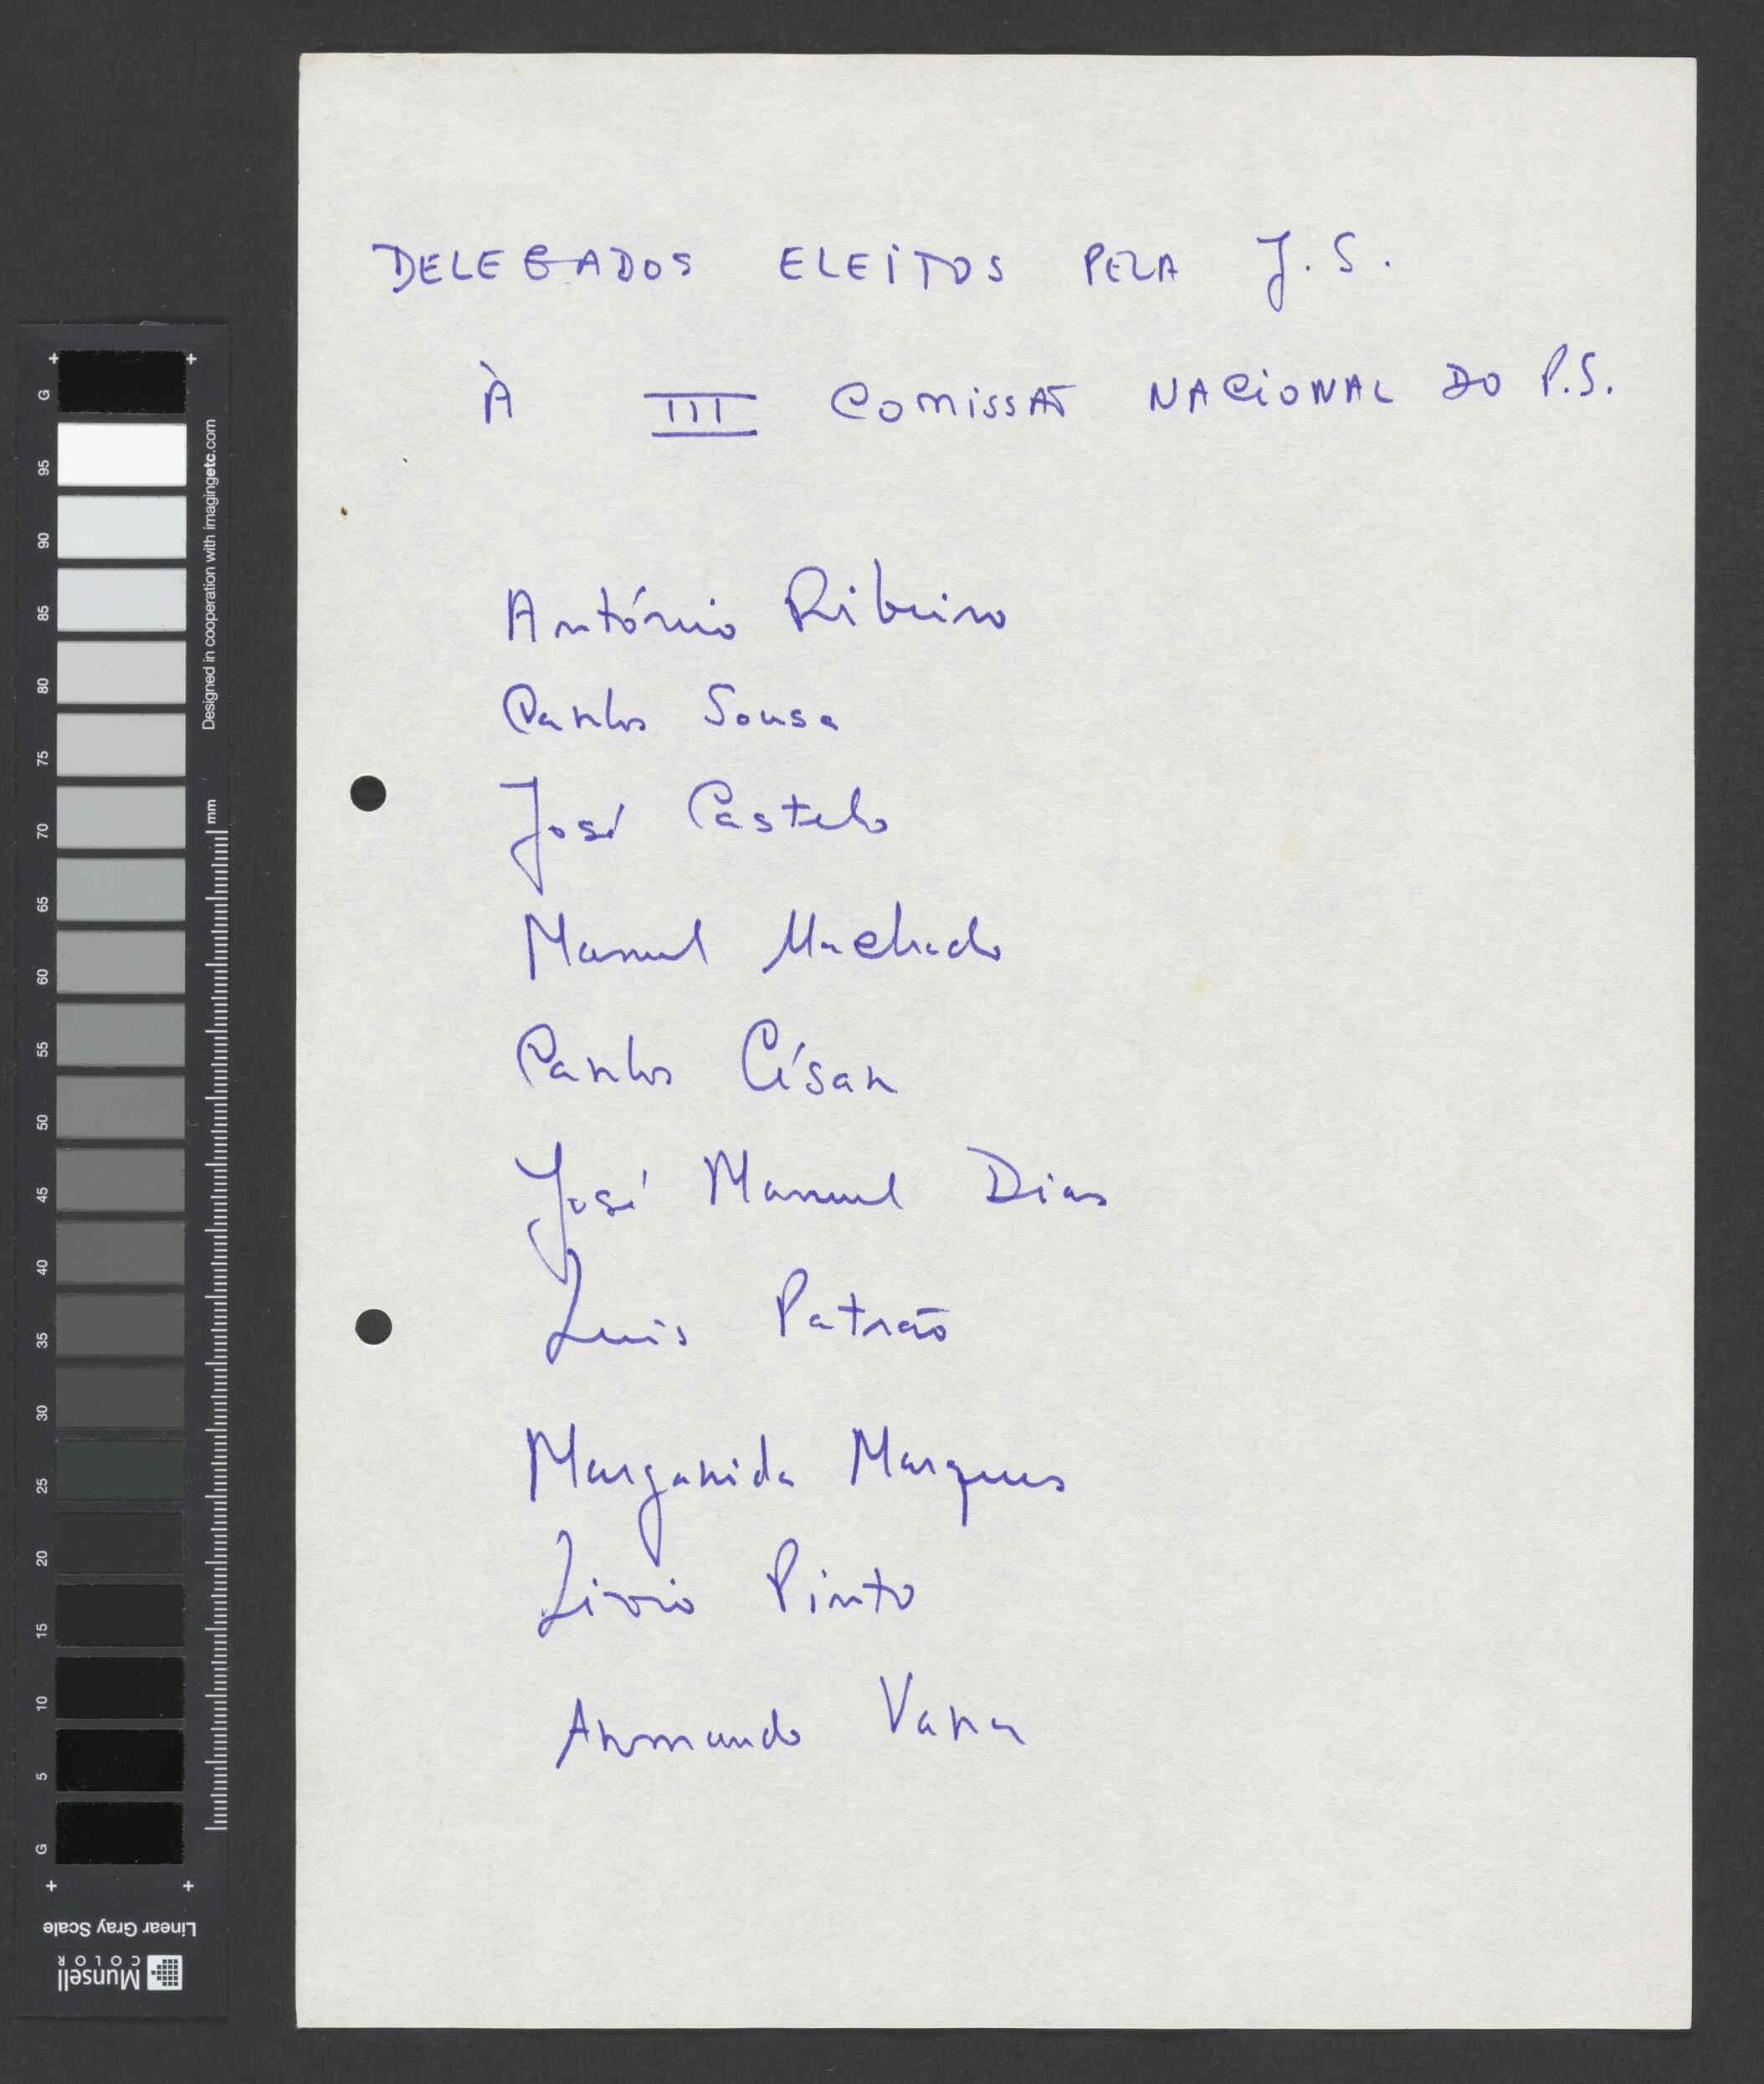 DELEGADOS ELEITOS PELA J.S.
À III COMISSÃO NACIONAL DO P.S.
António Ribeiro
Carlos Sousa
José Castelo
Manuel Machado
Carlos César
José Manuel Dias
Luis Patrão
Margarida Marques
Livio Pinto
Armando Vara
G
95
90
85
80
75
70
65
60
55
50
45
40
35
30
25
20
15
10
5
G
Designed in cooperation with imagingetc.com
mm
Linear Gray Scale
Munsell
COLOR